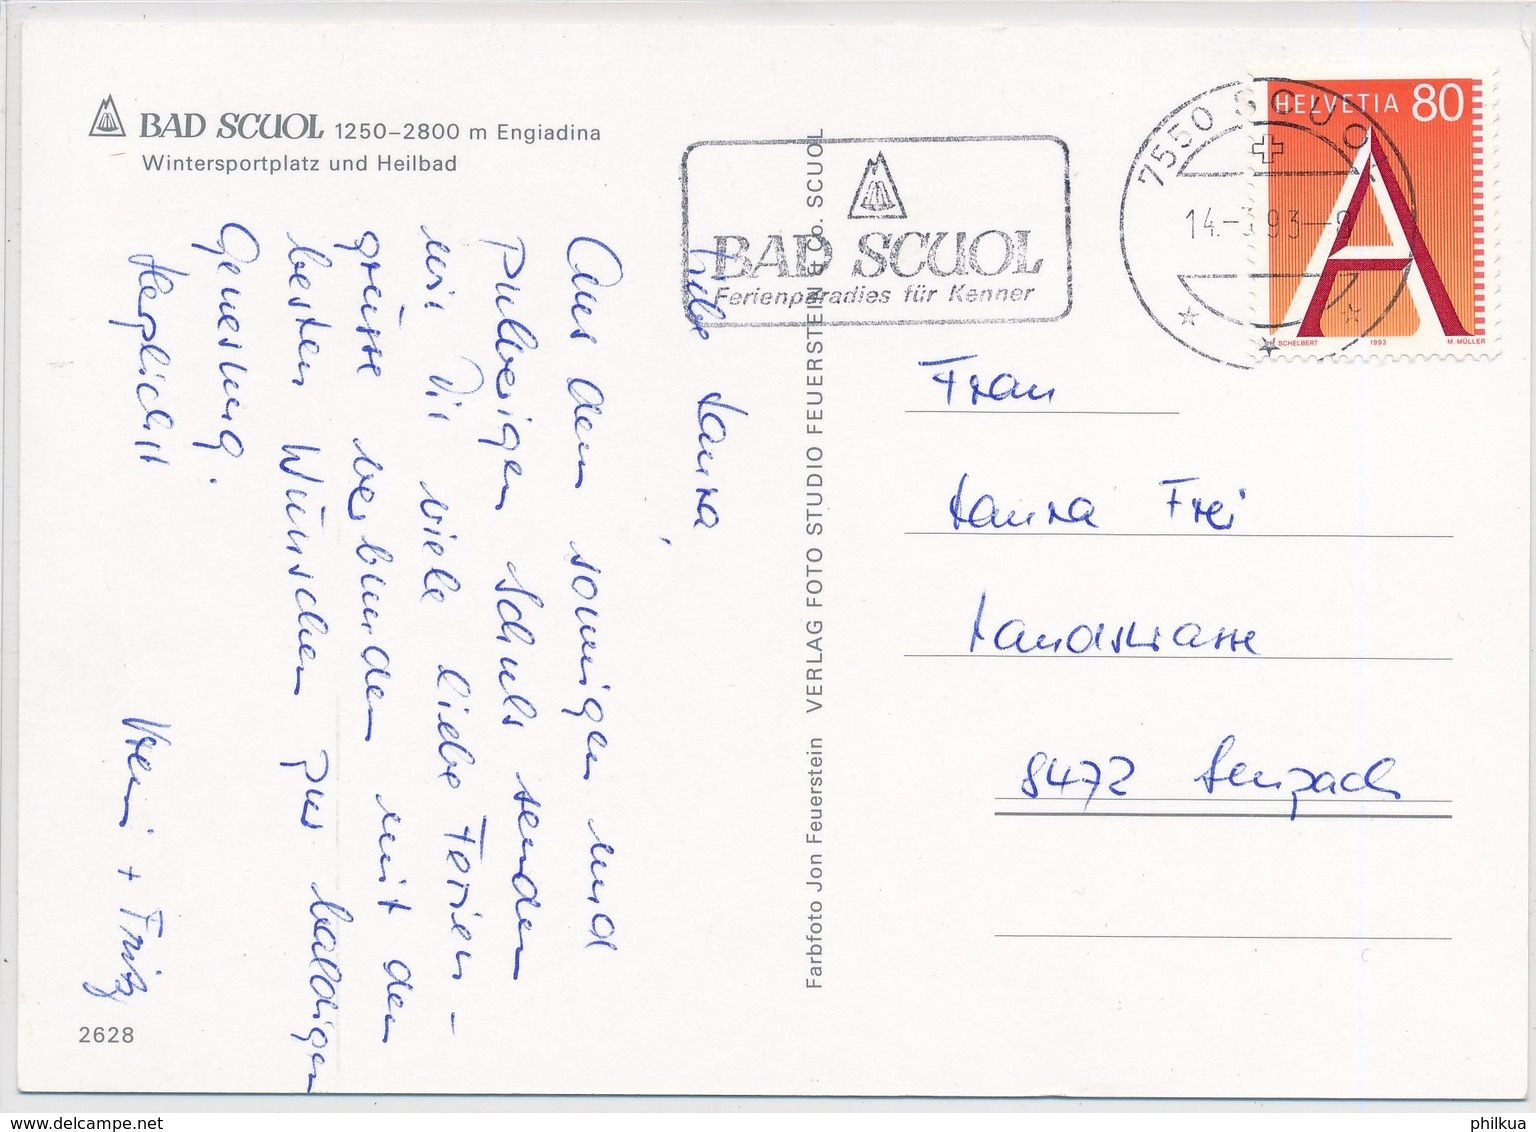 BAD SCUOL 1250–2800 m Engiadina
Wintersportplatz und Heilbad
Liebe Laura,
Aus dem sonnigen und
pulverigen Schuls senden
wir Dir viele liebe Ferien-
grüsse verbunden mit den
besten Wünschen zur baldigen
Genesung.
Herzlichst
Vreni + Fritz
2628
Farbfoto Jon Feuerstein VERLAG FOTO STUDIO FEUERSTEIN & CO. SCUOL
BAD SCUOL
Ferienparadies für Kenner
7550 SCUOL
14.-3.93-9
HELVETIA 80
SCHELBERT 1993 M. MÜLLER
Frau
Laura Frei
Landstrasse
8472 Seuzach
www.delcampe.net
philkua